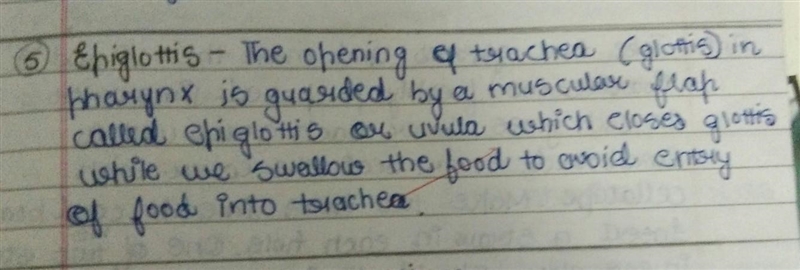 ⑤ Epiglottis - The opening of trachea (glottis) in
pharynx is guarded by a muscular flap
called epiglottis or uvula which closes glottis
while we swallow the food to avoid entry
of food into trachea.